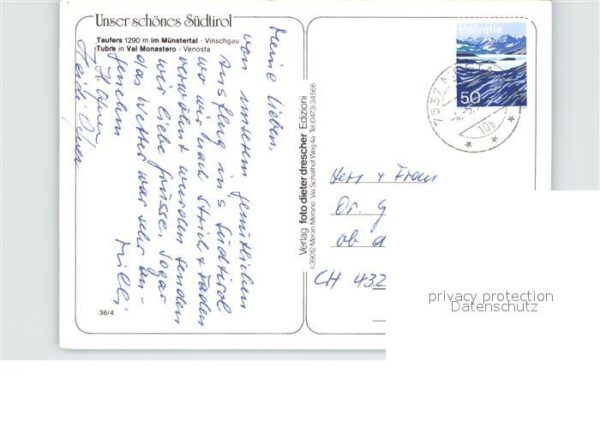 Unser schönes Südtirol
Taufers 1290 m im Münstertal - Vinschgau
Tubre in Val Monastero - Venosta
Meine Lieben,
von unserem gemütlichen
Ausflug ins Südtirol
wo wir nach Strich + Faden
verwöhnt wurden senden
wir liebe Grüsse. Sogar
das Wetter war sehr an-
genehm.
Milli
36/4
Verlag foto dieter drescher Edizioni
I-39012 Meran Merano Via Schafhof Weg 4a Tel (0473) 34566
Helvetia
50
7537
10b
Herr + Frau
Dr. G
ob a
CH 432
privacy protection
Datenschutz